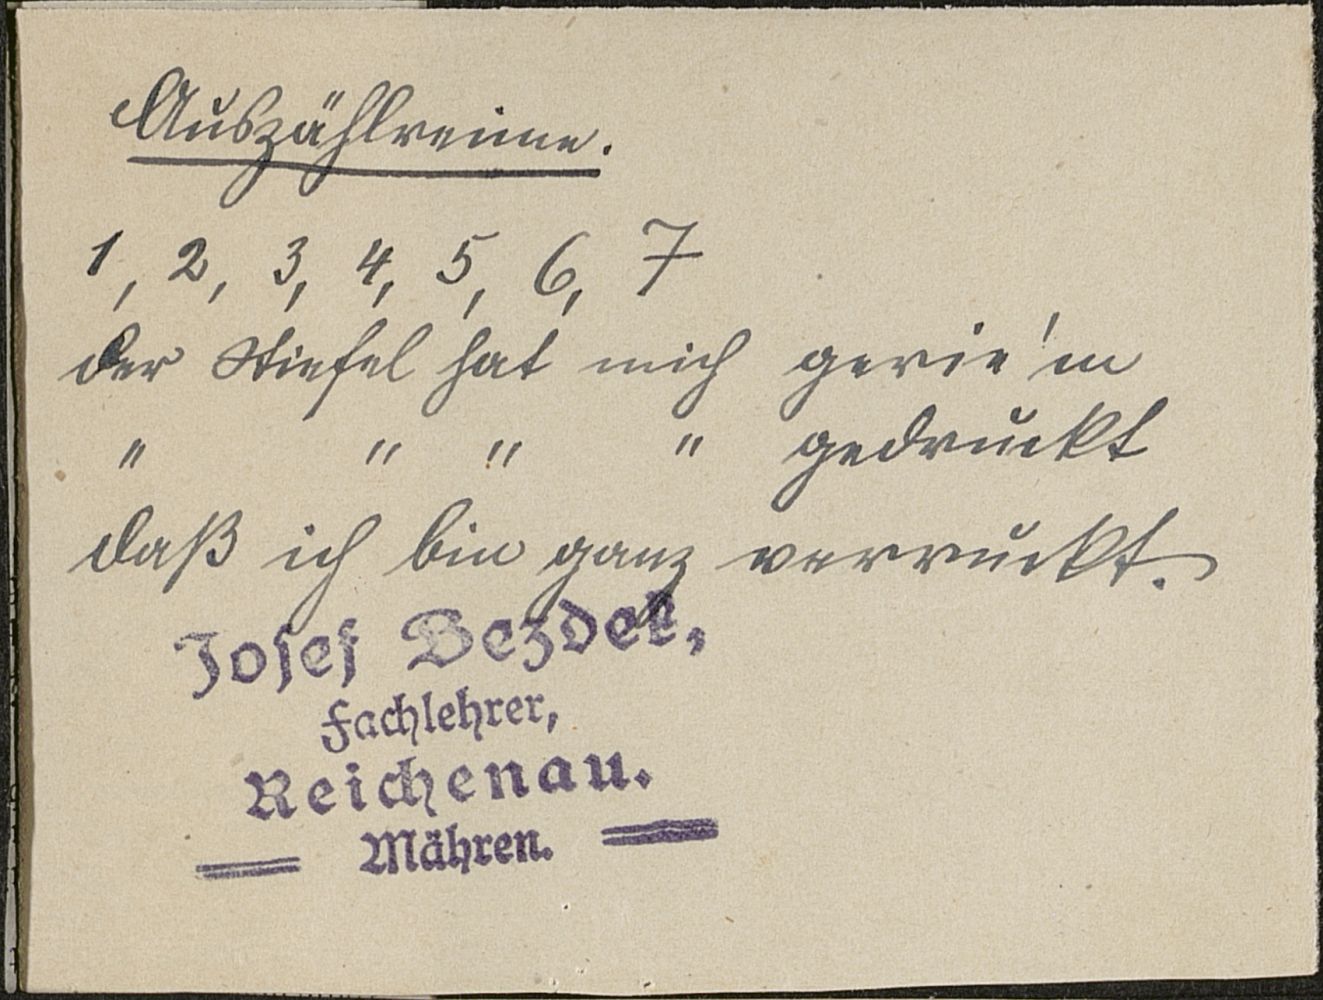 Auszählreime.
1, 2, 3, 4, 5, 6, 7
der Stiefel hat mich gerie'm
" " " " gedruckt
daß ich bin ganz verruckt.
Josef Bezdek,
Fachlehrer,
Reichenau.
Mähren.